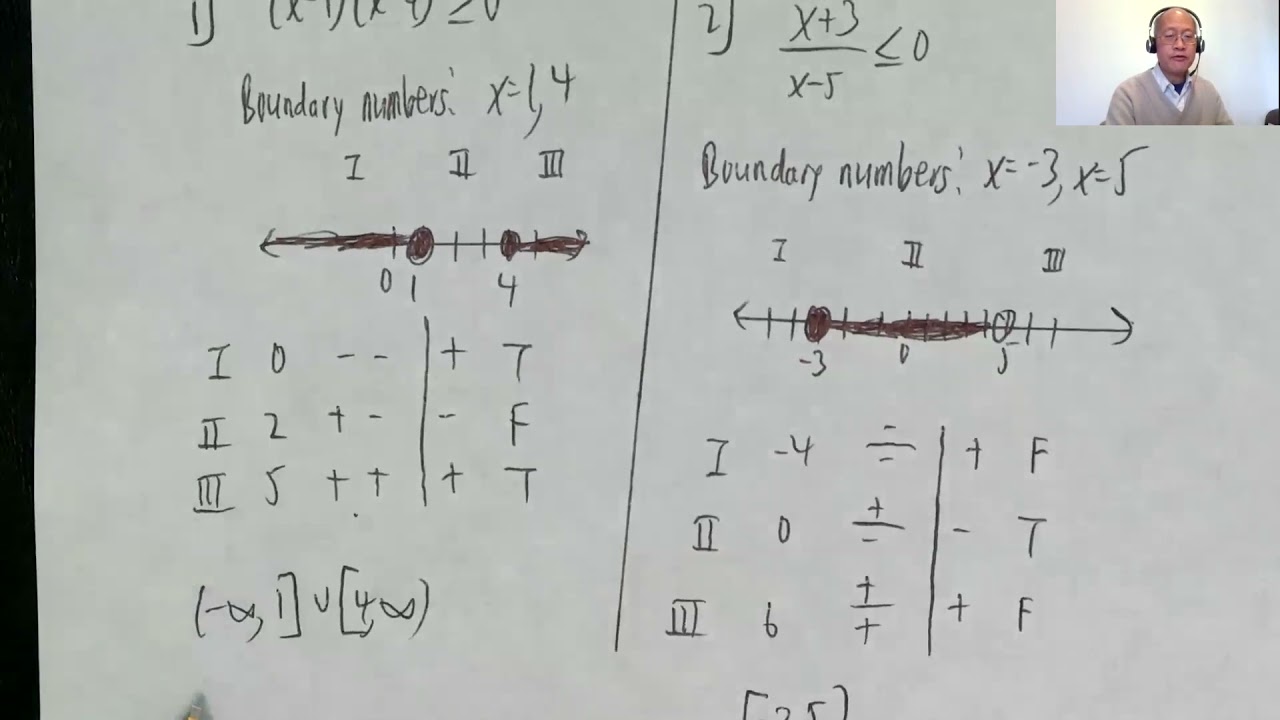 1) (x-1)(x-4) ≥0
Boundary numbers: x=1,4
I II III
0 1 4
I 0 - - | + T
II 2 + - | - F
III 5 + + | + T
(-∞, 1] ∪ [4,∞)
2) x+3
x-5
≤ 0
Boundary numbers: x=-3, x=5
I II III
-3 0 5
I -4 -/- | + F
II 0 +/- | - T
III 6 +/+ | + F